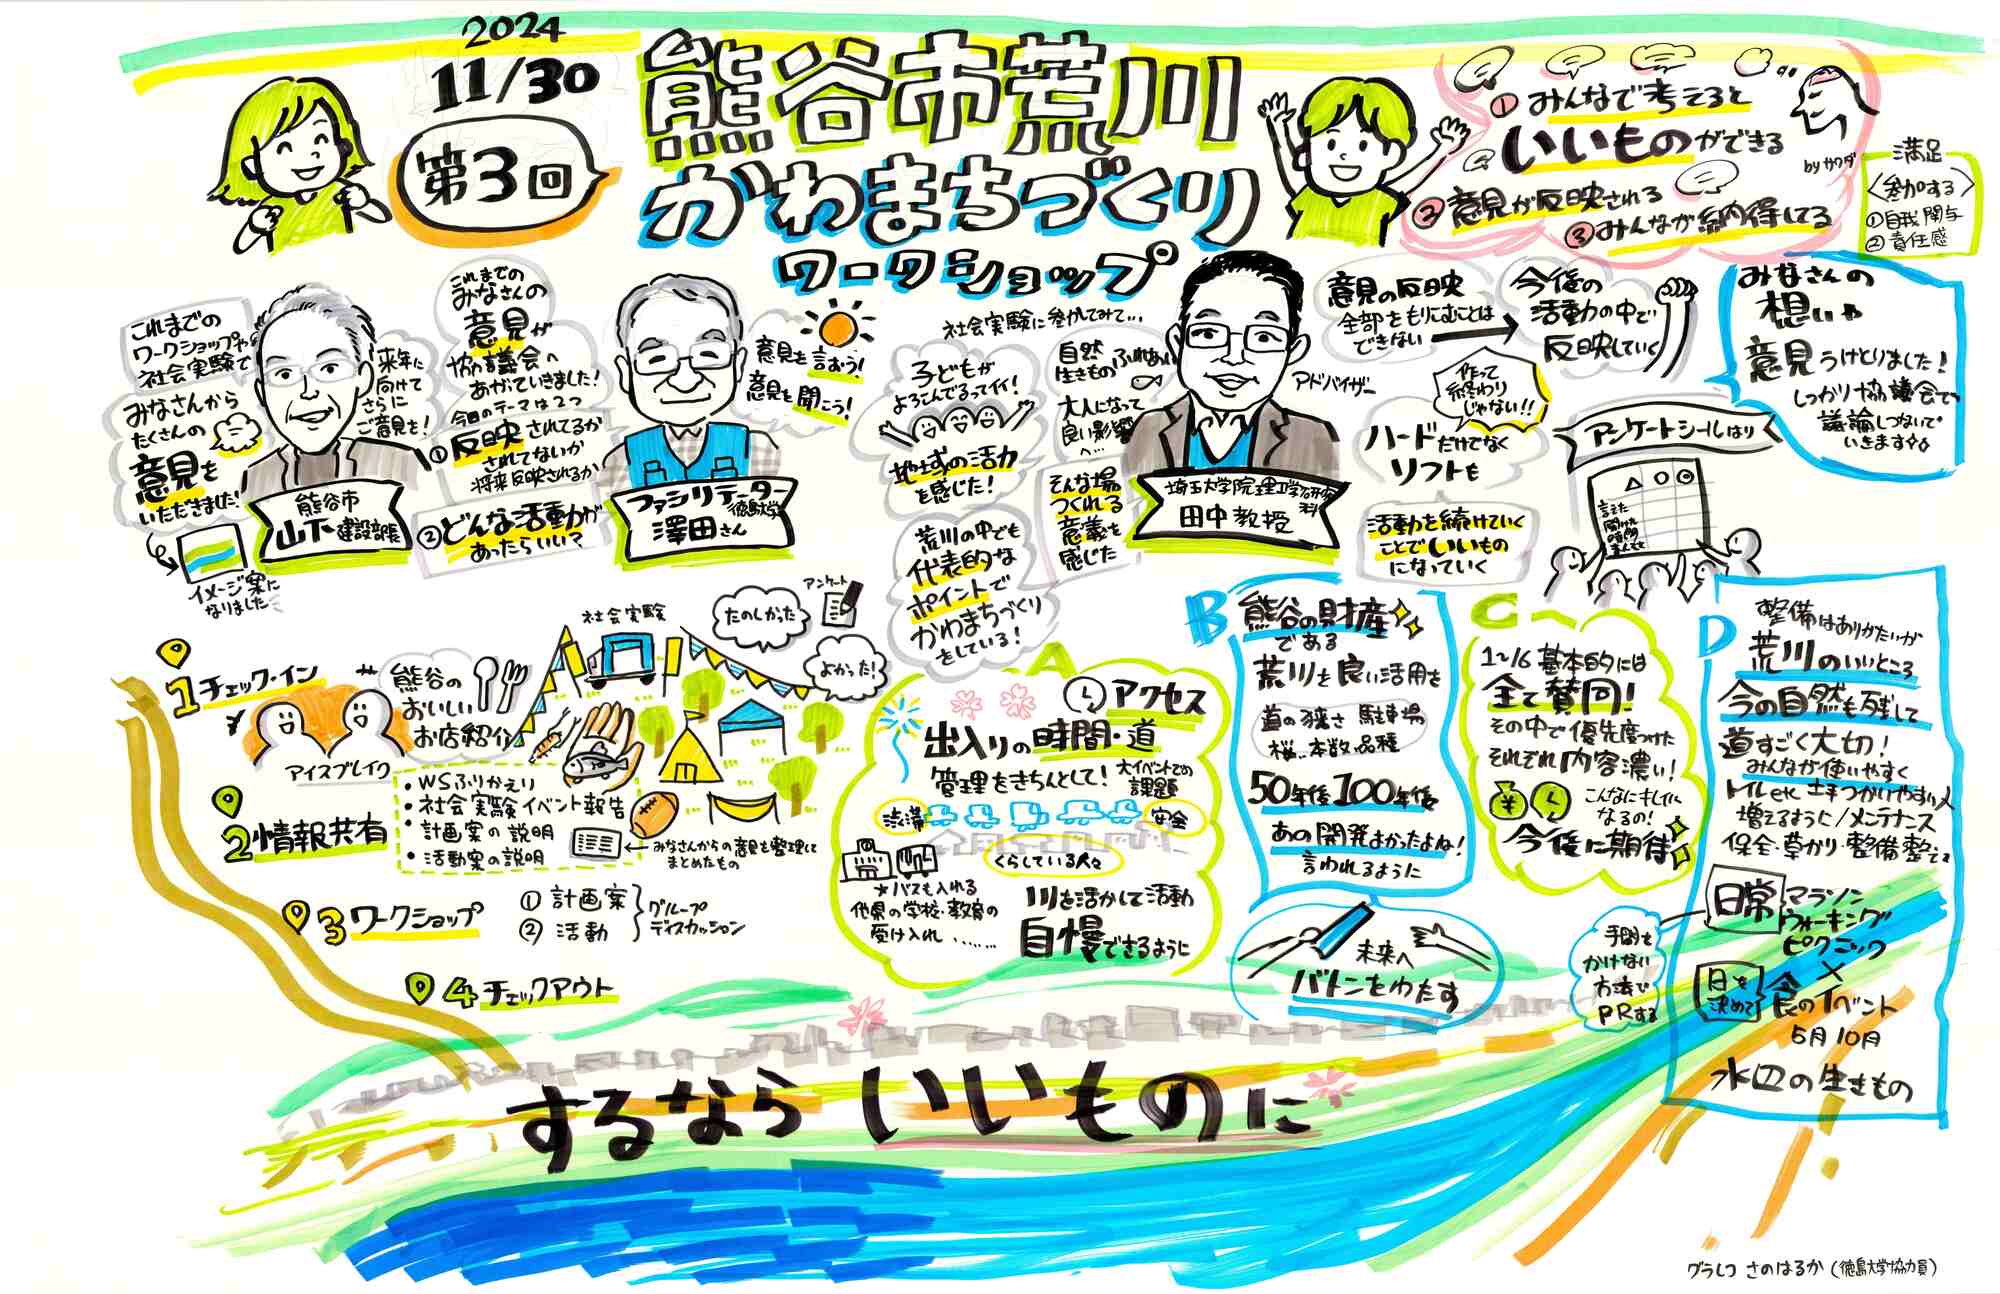 2024
11/30
第3回
熊谷市荒川
かわまちづくり
ワークショップ
①みんなで考えると
いいものができる
by サワダ
②意見が反映される
③みんなが納得してる
満足
〈参加する〉
①自我関与
②責任感
これまでの
ワークショップや
社会実験で
みなさんから
たくさんの
意見を
いただきました!
イメージ案に
なりました
来年に
向けて
さらに
ご意見を!
熊谷市
山下建設部長
これまでの
みなさんの
意見が
協議会の
あがっていきました!
今回のテーマは2つ
①反映されてるか
されてないか
将来反映されるか
②どんな活動が
あったらいい?
ファシリテーター
徳島大学
澤田さん
意見を言おう!
意見を聞こう!
社会実験に参加してみて…
子どもが
よろこんでるってイイ!
地域の活力
を感じた!
荒川の中でも
代表的な
ポイントで
かわまちづくり
をしている!
自然
生きものふれあい
大人になって
良い影響
へ…
そんな場
つくれる
意義を
感じた
埼玉大学院理工学研究科
田中教授
アドバイザー
意見の反映
全部をもりこむことは
できない
今後の
活動の中で
反映していく
作って
終わり
じゃない!!
ハードだけでなく
ソフトも
活動を続けていく
ことでいいもの
になっていく
みなさんの
想いや
意見うけとりました!
しっかり協議会で
議論しつないで
いきます
アンケートシールはり
△ ○ ◎
言えた
聞けた
時間
まんぞく
1 チェック・イン
アイスブレイク
熊谷の
おいしい
お店紹介
2 情報共有
・WSふりかえり
・社会実験イベント報告
・計画案の説明
・活動案の説明
みなさんからの意見を整理して
まとめたもの
3 ワークショップ
① 計画案
② 活動
グループ
ディスカッション
4 チェックアウト
社会実験
たのしかった
アンケート
よかった!
A
アクセス
出入りの時間・道
管理をきちんとして!
大イベントでの
課題
渋滞
安全
くらしている人々
★バスも入れる
他県の学校・教育の
受け入れ……
川を活かして活動
自慢できるように
B
熊谷の財産
である
荒川を良い活用を
道の狭さ 駐車場
桜…本数、品種
50年後100年後
あの開発よかったよね!
言われるように
未来へ
バトンをわたす
C
1~16 基本的には
全て賛同!
その中で優先度つけた
それぞれ内容濃い!
¥
こんなにキレイに
なるの!
今後に期待
D
整備はありがたいが
荒川のいいところ
今の自然も残して
道すごく大切!
みんなが使いやすく
トイレetc 土手つかいやすい人
増えるように/メンテナンス
保全・草かり・整備整え
日常
マラソン
ウォーキング
ピクニック
手間を
かけない
方法で
PRする
日を
決めて
食×
長のイベント
5月 10月
水辺の生きもの
するなら いいものに
グラレコ さのはるか (徳島大学協力員)